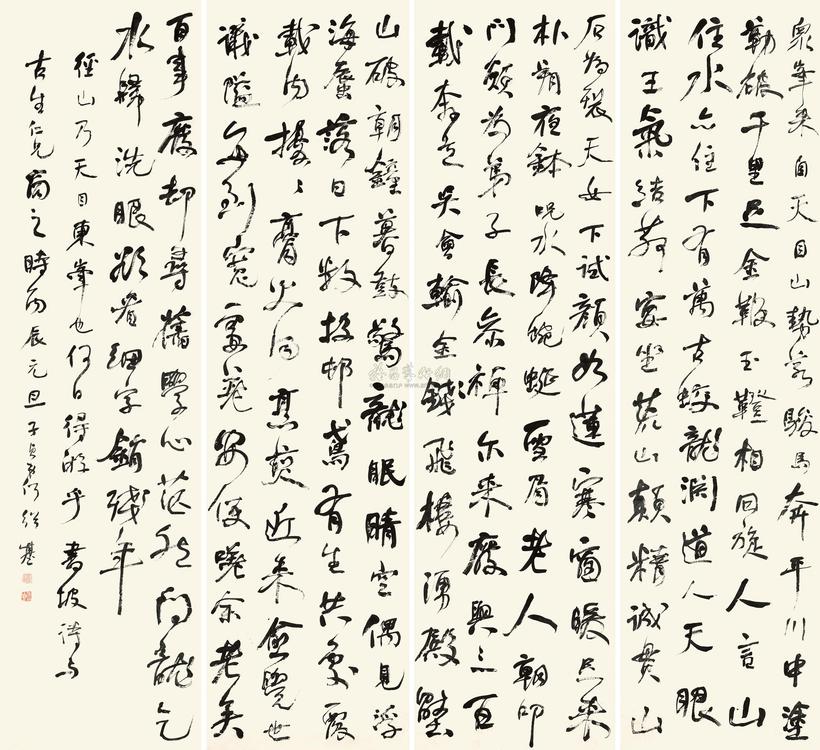 眾峯來自天目山勢若駿馬奔平川中塗
勒破千里足金鞭玉鐙相回旋人言山
住水亦住下有萬古蛟龍淵道人天眼
識王氣結茅宴坐荒山顛精誠貫山
石為裂天女下試顏如蓮寒窗暖足來
朴朔夜鉢呪水降蜿蜒雪眉老人朝叩
門願為弟子長參禪尔來廢興三百
載奔走吳會輸金錢飛樓湧殿壓
山破朝鐘暮鼓驚龍眠晴空偶見浮
海蜃落日下數投邨鳶有生共處覆
載內擾〻膏火同烹煎近來愈覺世
議隘每到寬處差安便嗟余老矣
百事廢却尋舊學心茫然問龍乞
水歸洗眼欲看細字銷殘年
徑山乃天目東峯也何日得游乎書坡詩与
古生仁兄商之時丙辰元旦子貞弟何紹基